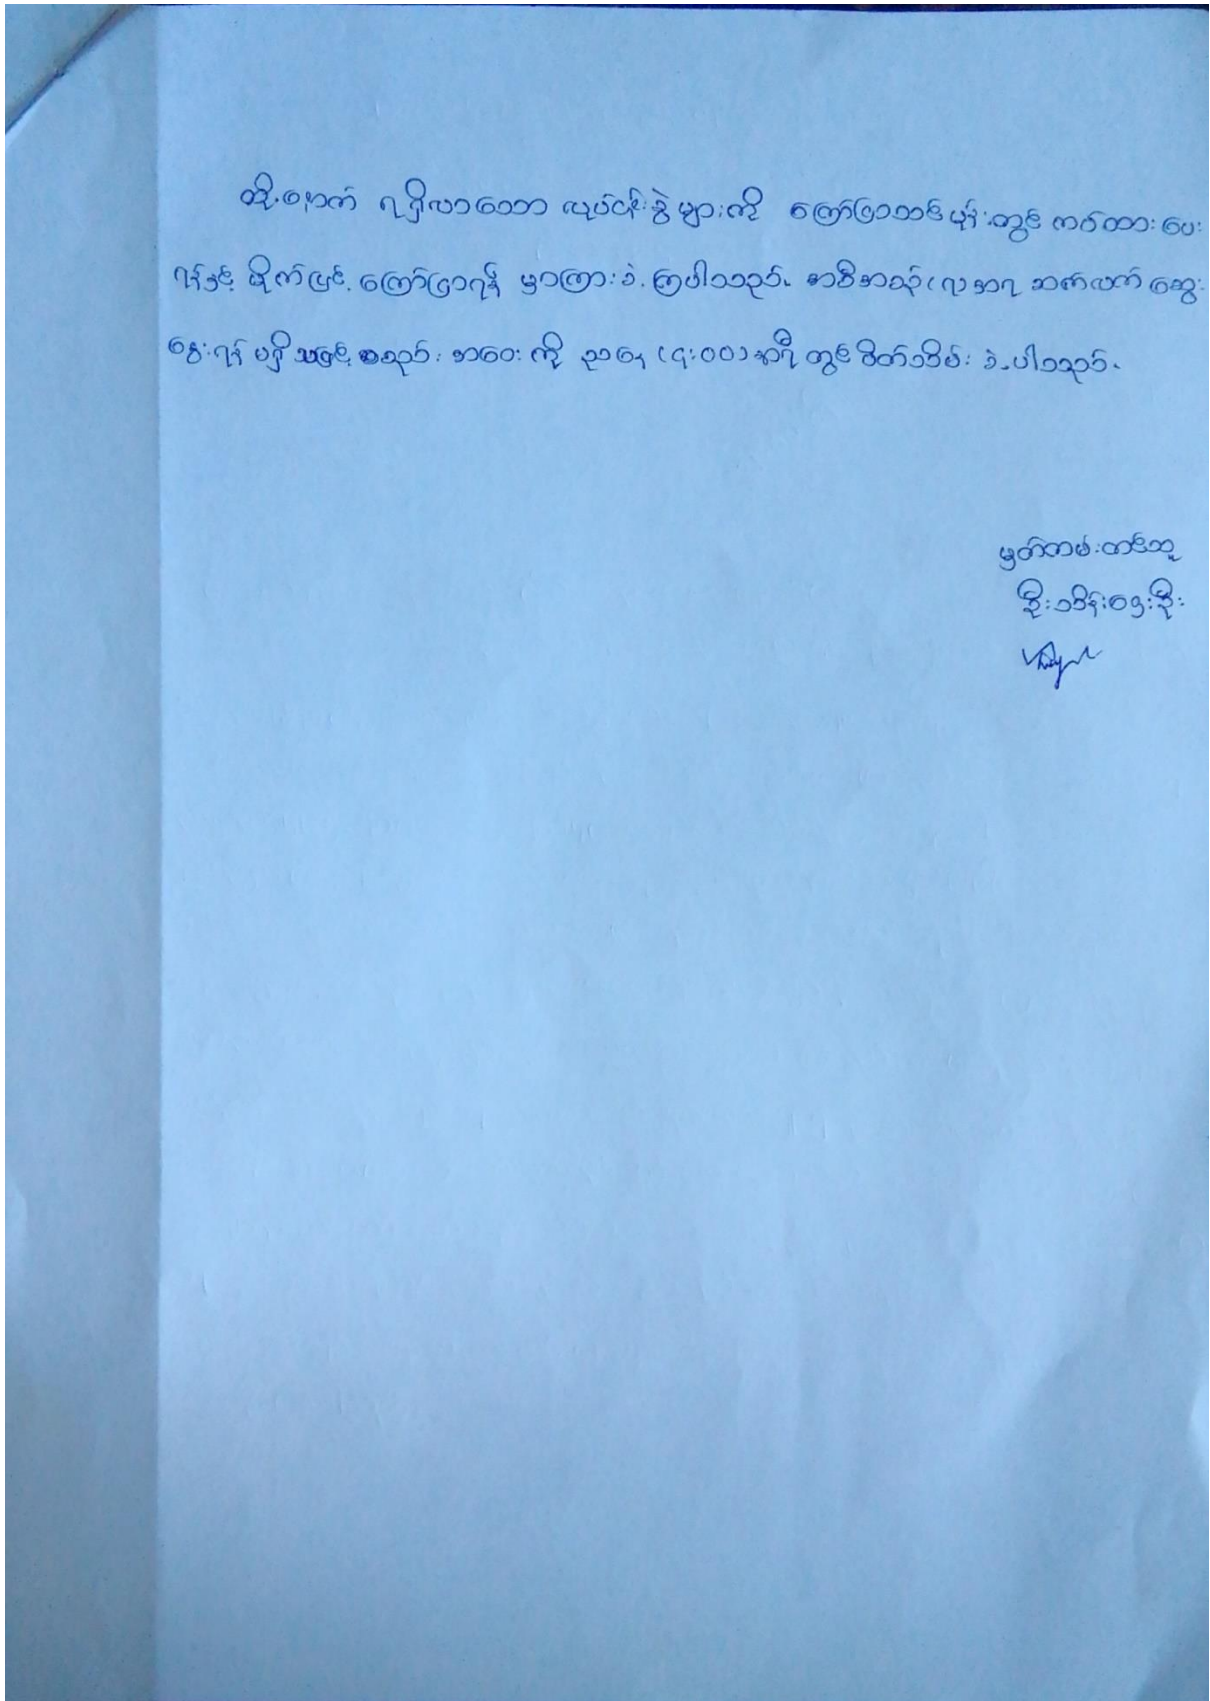 ထို့နောက် ရရှိလာသော လုပ်ငန်းခွဲများကို ကြော်ငြာသင်ပုန်းတွင် ကပ်ထားပေး
ရန်နှင့် မိုက်ဖြင့် ကြော်ငြာရန် မှာကြားခဲ့ကြပါသည်။ အစီအစဉ်(၇)အရ ဆက်လက်ဆွေး
နွေးရန် မရှိသဖြင့် အစည်းအဝေးကို ညနေ (၄:၀၀)နာရီတွင် ရုတ်သိမ်းခဲ့ပါသည်။
မှတ်တမ်းတင်သူ
ဦးသိန်းဌေးဦး